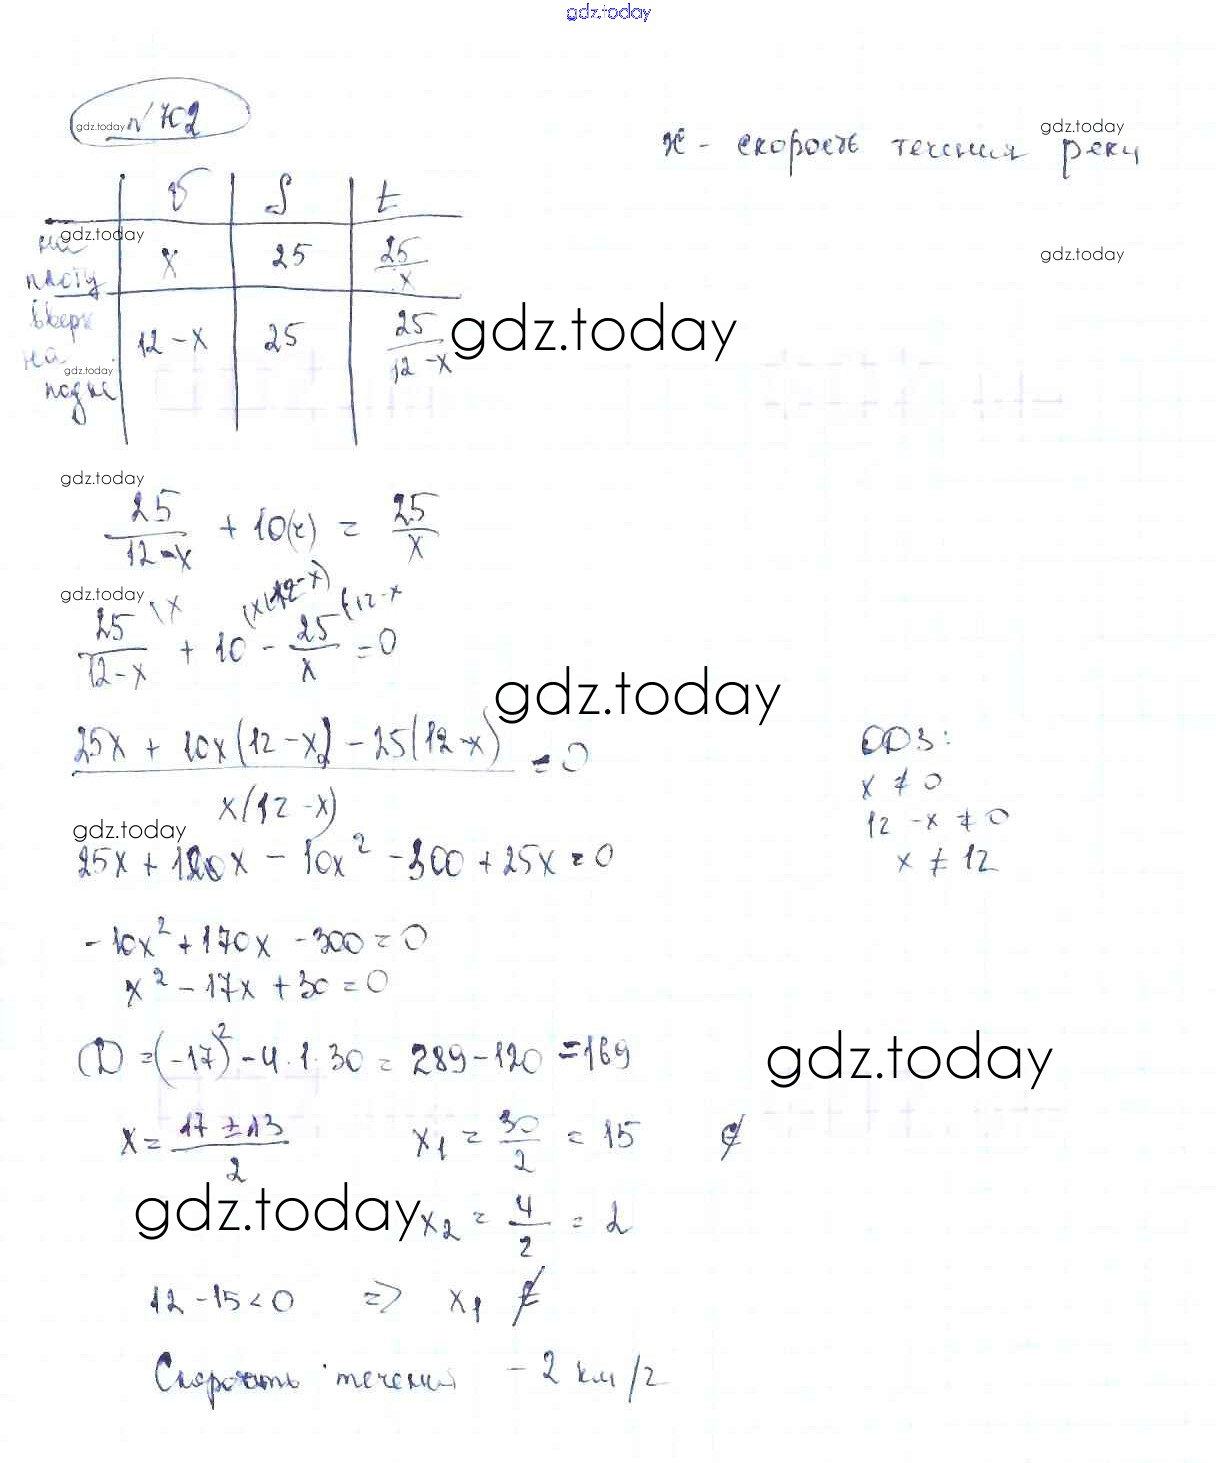 gdz.today
gdz.today № 702
x - скорость течения реки
gdz.today
v S t
gdz.today
на плоту x 25 25/x
gdz.today
вверх на лодке 12-x 25 25/(12-x)
gdz.today
gdz.today
gdz.today
25/(12-x) + 10(ч) = 25/x
gdz.today
25/(12-x) (x + 10 (x(12-x) - 25/x (12-x = 0
gdz.today
(25x + 10x(12-x) - 25(12-x))/(x(12-x)) = 0
ОДЗ:
x ≠ 0
12 - x ≠ 0
x ≠ 12
gdz.today
25x + 120x - 10x² - 300 + 25x = 0
-10x² + 170x - 300 = 0
x² - 17x + 30 = 0
D = (-17)² - 4·1·30 = 289 - 120 = 169
gdz.today
x = (17 ± 13)/2 x₁ = 30/2 = 15 ∉
gdz.today
x₂ = 4/2 = 2
12 - 15 < 0 => x₁ ∉
Скорость течения - 2 км/ч